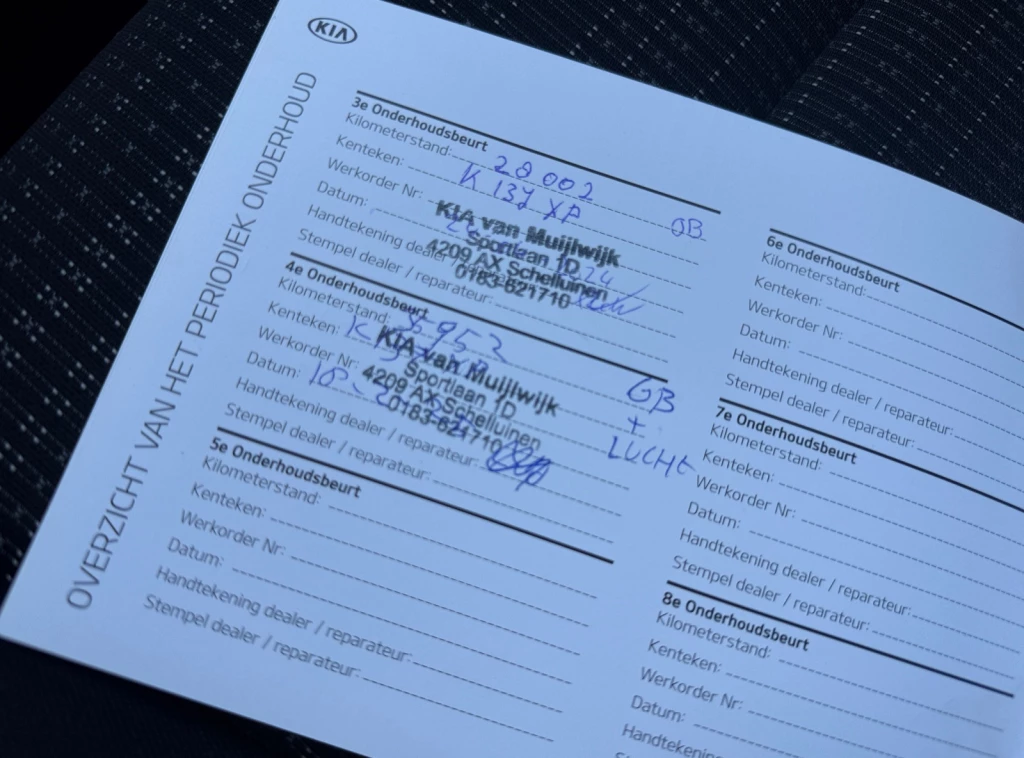 KIA
OVERZICHT VAN HET PERIODIEK ONDERHOUD
3e Onderhoudsbeurt
Kilometerstand: 28 002
Kenteken: OB
Werkorder Nr:
Datum:
Handtekening dealer / reparateur:
Stempel dealer / reparateur:
KIA van Muijlwijk
Sportlaan 1D
4209 AX Schelluinen
0183-621710
4e Onderhoudsbeurt
Kilometerstand:
Kenteken:
Werkorder Nr:
Datum:
Handtekening dealer / reparateur:
Stempel dealer / reparateur:
KIA van Muijlwijk
Sportlaan 1D
4209 AX Schelluinen
0183-621710
GB
+
LUCHt
5e Onderhoudsbeurt
Kilometerstand:
Kenteken:
Werkorder Nr:
Datum:
Handtekening dealer / reparateur:
Stempel dealer / reparateur:
6e Onderhoudsbeurt
Kilometerstand:
Kenteken:
Werkorder Nr:
Datum:
Handtekening dealer / reparateur:
Stempel dealer / reparateur:
7e Onderhoudsbeurt
Kilometerstand:
Kenteken:
Werkorder Nr:
Datum:
Handtekening dealer / reparateur:
Stempel dealer / reparateur:
8e Onderhoudsbeurt
Kilometerstand:
Kenteken:
Werkorder Nr:
Datum:
Handtekening